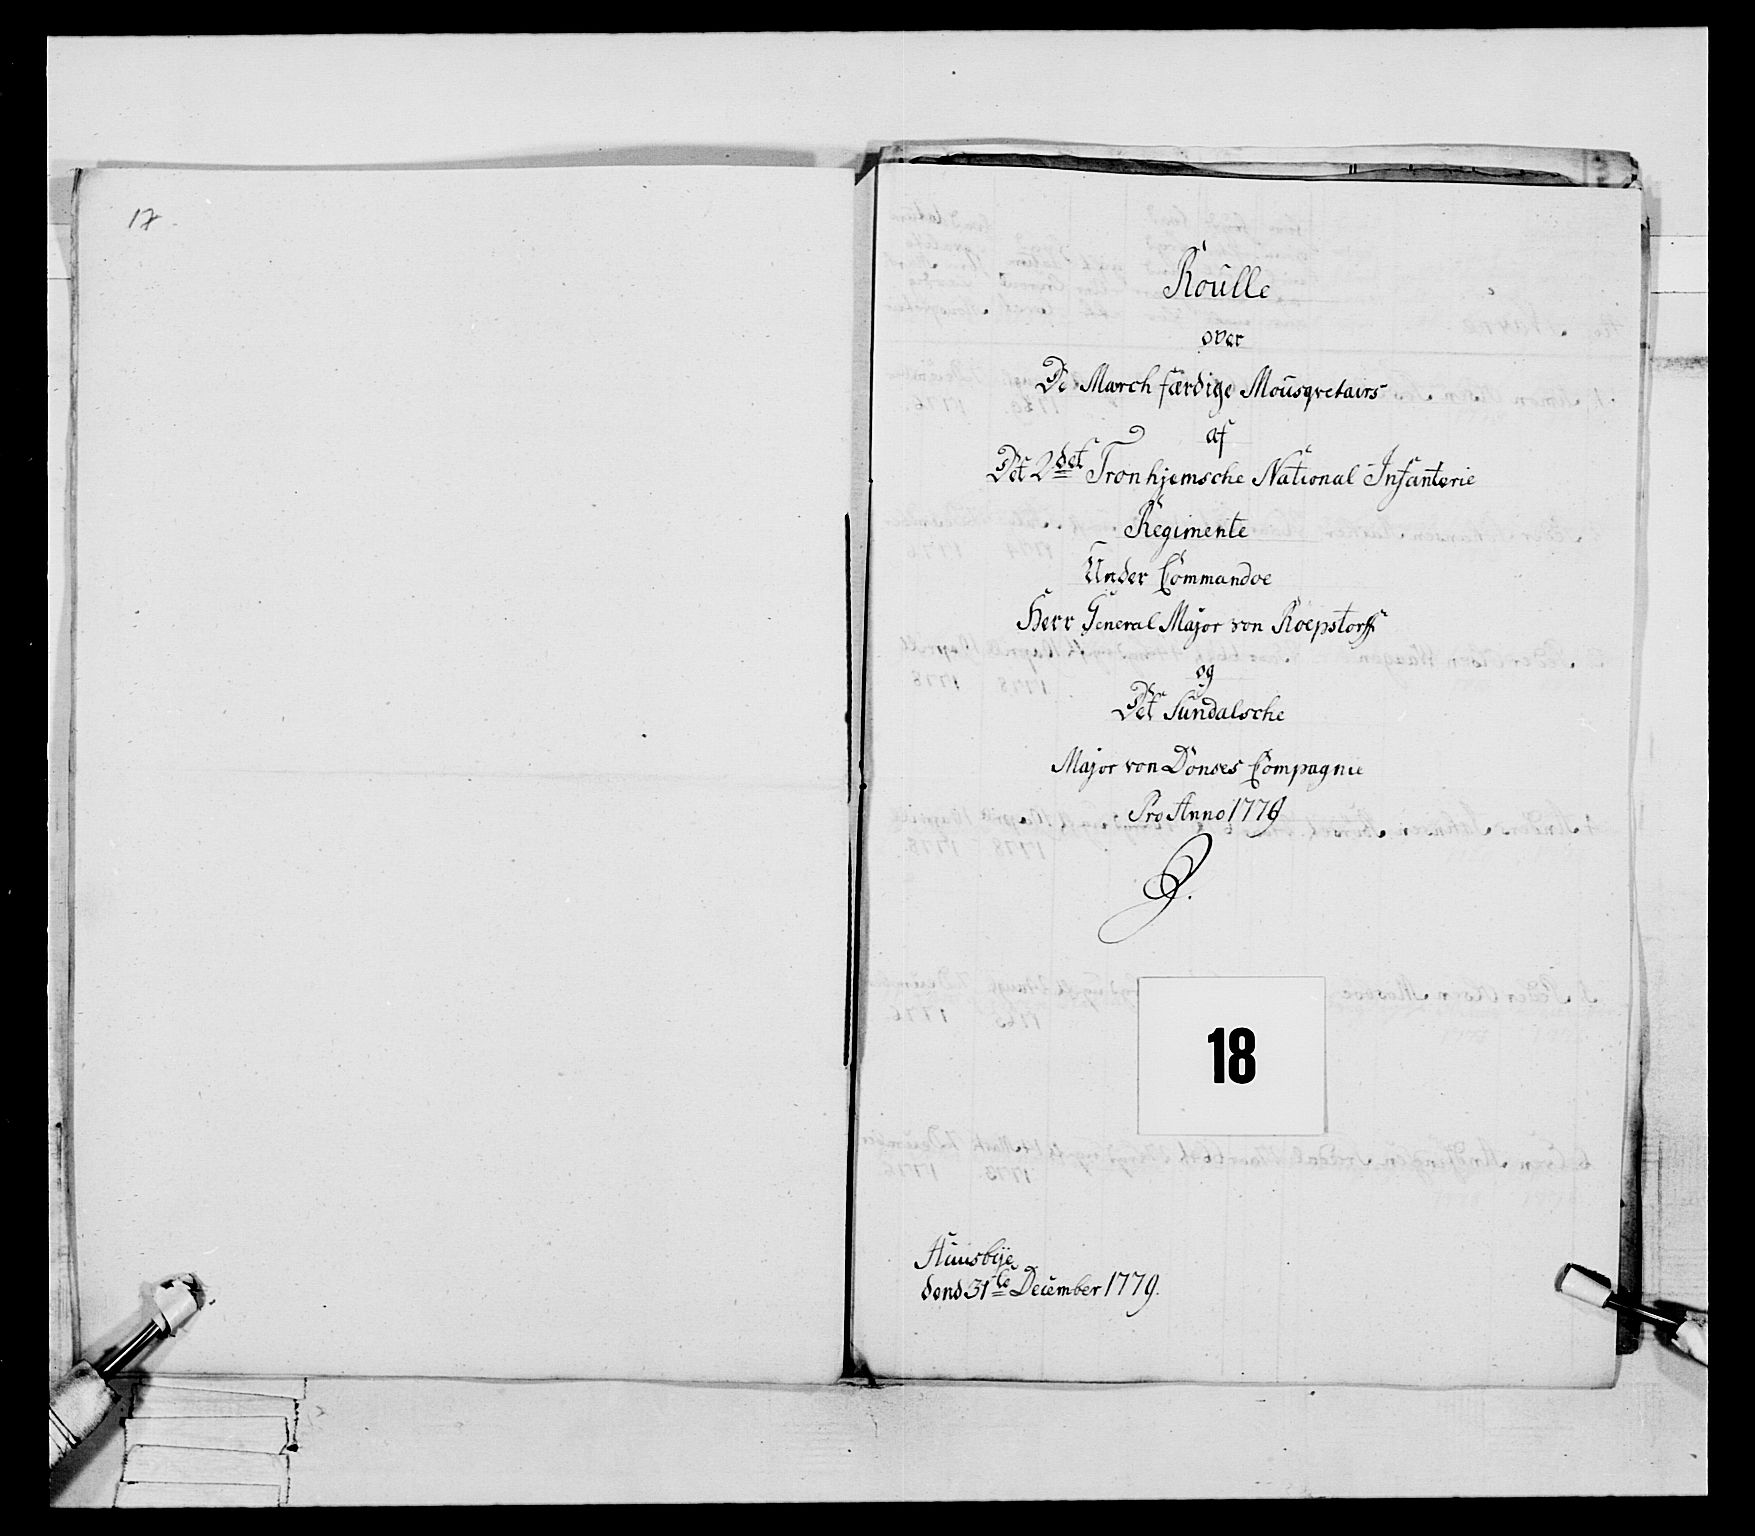 17.
Roulle
over
De March færdige Mousqvetairs
af
Det 2det Tronhjemsche National Infanterie
Regimente
Under Commandoe
Herr General Major von Roepstorff
og
Det Sundalsche
Major von Dönses Compagnie
Pro Anno 1779
18
Huusbye
dend 31te December 1779.